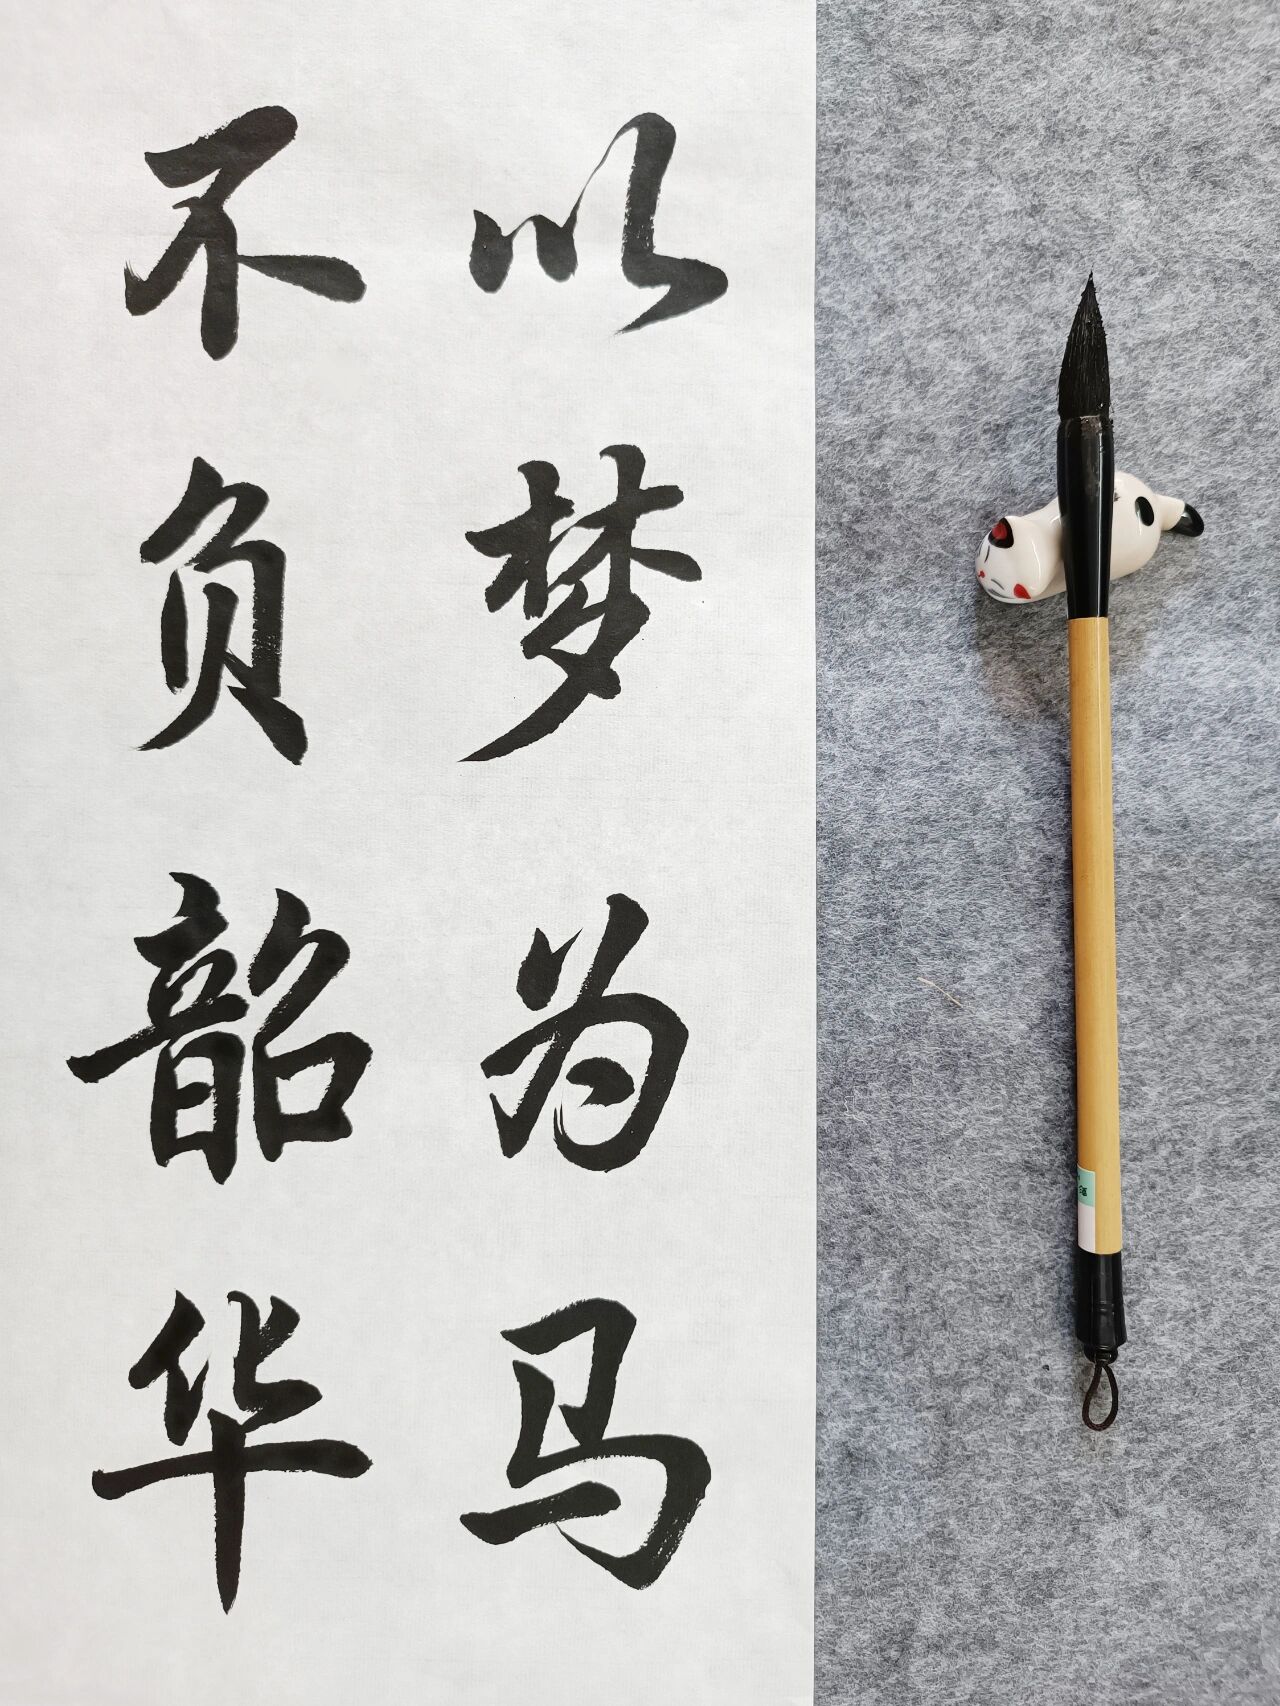 以梦为马
不负韶华